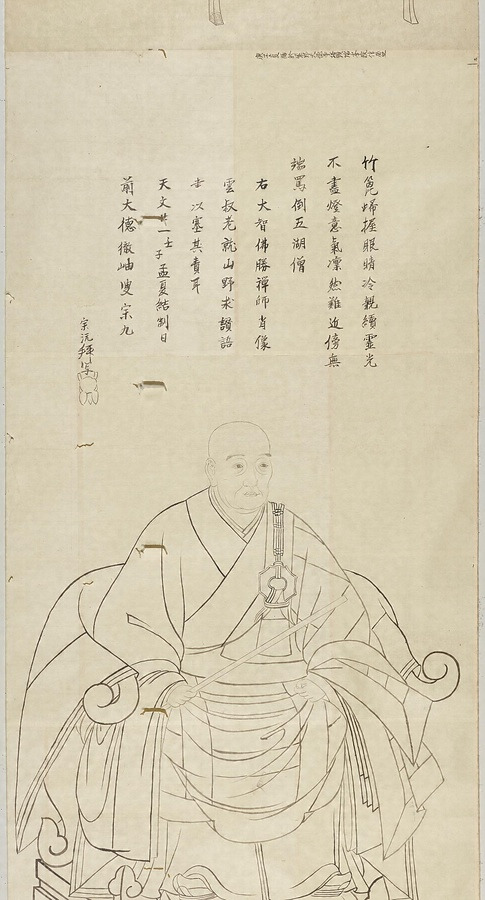 竹篦歸握眼睛冷親續靈光
不盡燈意氣凛然難近傍無
端罵倒五湖僧
右大智佛勝禪師肖像
雲叔老就山野求讚語
書以塞其責耳
天文廿一壬子孟夏結制日
前大德徹岫叟宗九
宗沅拜写